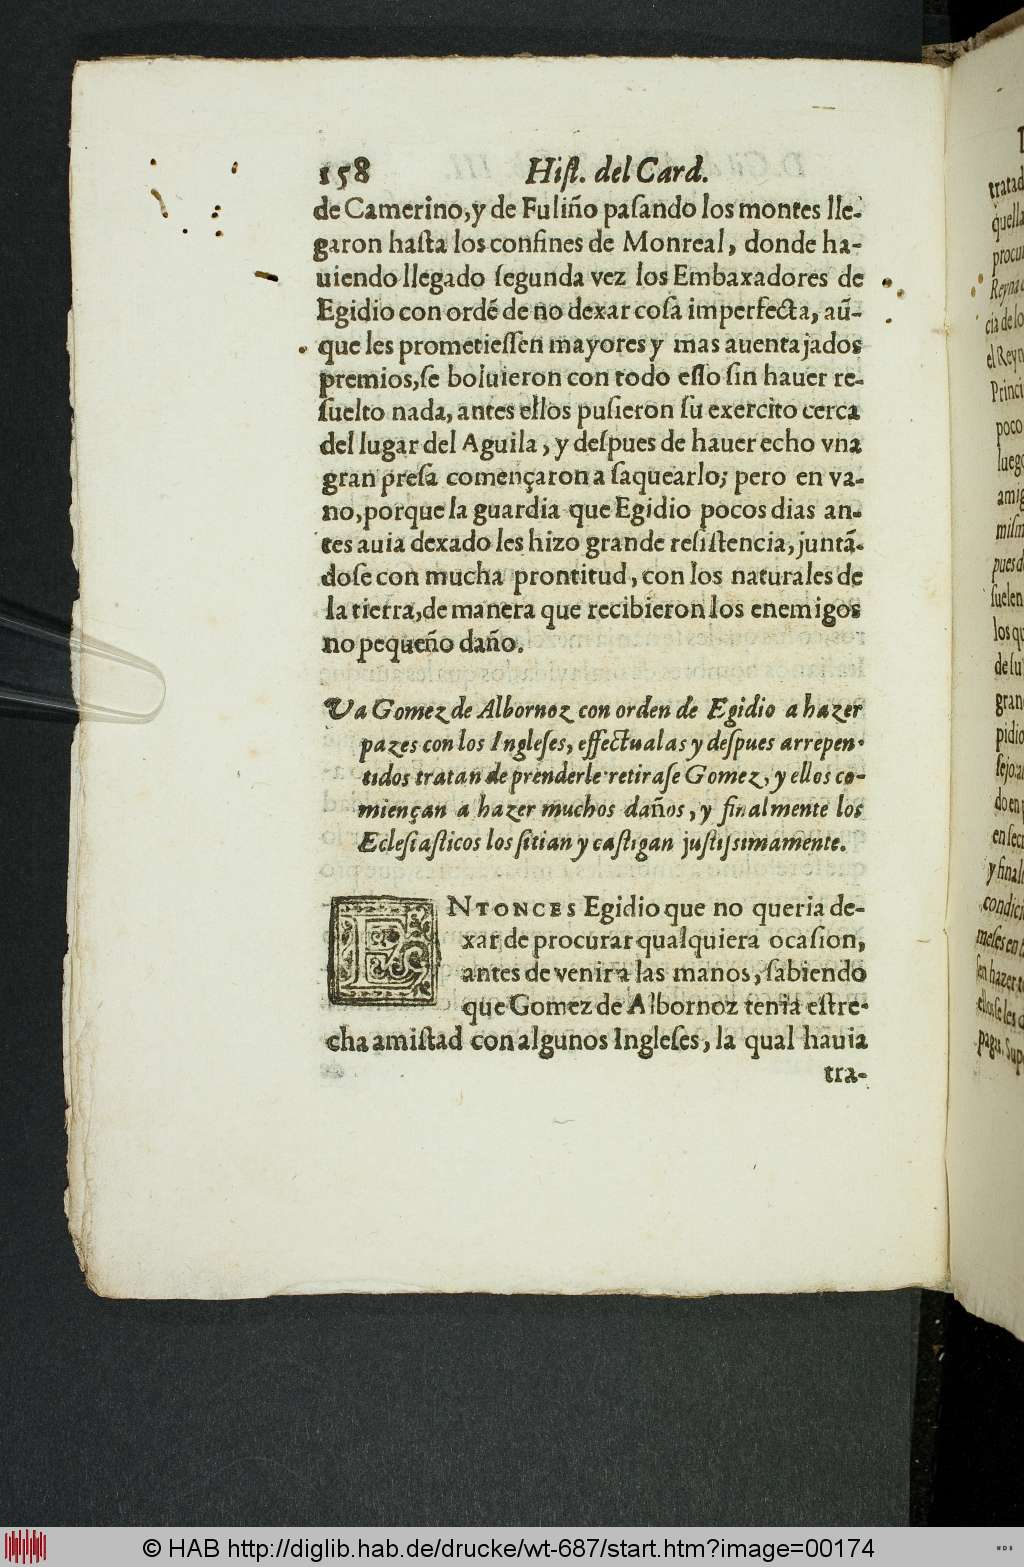 158 Hiſt. del Card.
de Camerino, y de Fuliño paſando los montes lle-
garon haſta los confines de Monreal, donde ha-
uiendo llegado ſegunda vez los Embaxadores de
Egidio con ordẽ de no dexar coſa imperfecta, aũ-
que les prometieſſen mayores y mas auentajados
premios, ſe boluieron con todo eſſo ſin hauer re-
ſuelto nada, antes ellos puſieron ſu exercito cerca
del lugar del Aguila, y deſpues de hauer echo vna
gran preſa començaron a ſaquearlo; pero en va-
no, porque la guardia que Egidio pocos dias an-
tes auia dexado les hizo grande reſiſtencia, juntã-
doſe con mucha prontitud, con los naturales de
la tierra, de manera que recibieron los enemigos
no pequeño daño.
Va Gomez de Albornoz con orden de Egidio a hazer
pazes con los Ingleſes, effectualas y deſpues arrepen-
tidos tratan de prenderle retiraſe Gomez, y ellos co-
miençan a hazer muchos daños, y finalmente los
Ecleſiaſticos los ſitian y caſtigan juſtiſsimamente.
ENTONCES Egidio que no queria de-
xar de procurar qualquiera ocaſion,
antes de venir a las manos, ſabiendo
que Gomez de Albornoz tenia eſtre-
cha amiſtad con algunos Ingleſes, la qual hauia
tra-
tratad
quella
procu
Reyna
cia de lo
el Reyn
Princi
poco
luego
amig
miſm
pues d
ſuelen
los qu
de ſu
gran
pidio
ſejo
do en
en ſec
y final
condici
meſes en
ſen hazer
ellos ſe les
paga. Sup
© HAB http://diglib.hab.de/drucke/wt-687/start.htm?image=00174